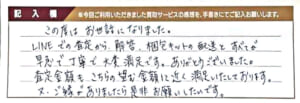 記入欄
※今回ご利用いただきました買取サービスの感想を、手書きにてご記入お願いします。
この度はお世話になりました。
LINEでの査定から、解答、梱包キットの郵送とすべてが
早急で丁寧で大変満足です。ありがとうございました。
査定金額もこちらの望む金額に近く満足いたしております。
又、ご縁がありましたら是非お願いしたいです。